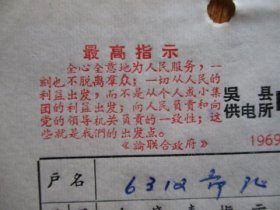 最高指示
全心全意地为人民服务，一
刻也不脱离羣众；一切从人民的
利益出发，而不是从个人或小集
团的利益出发；向人民负责和向
党的领导机关负责的一致性；这
些就是我們的出发点。
《論联合政府》
吳县
供电所
1969
户名
6312部